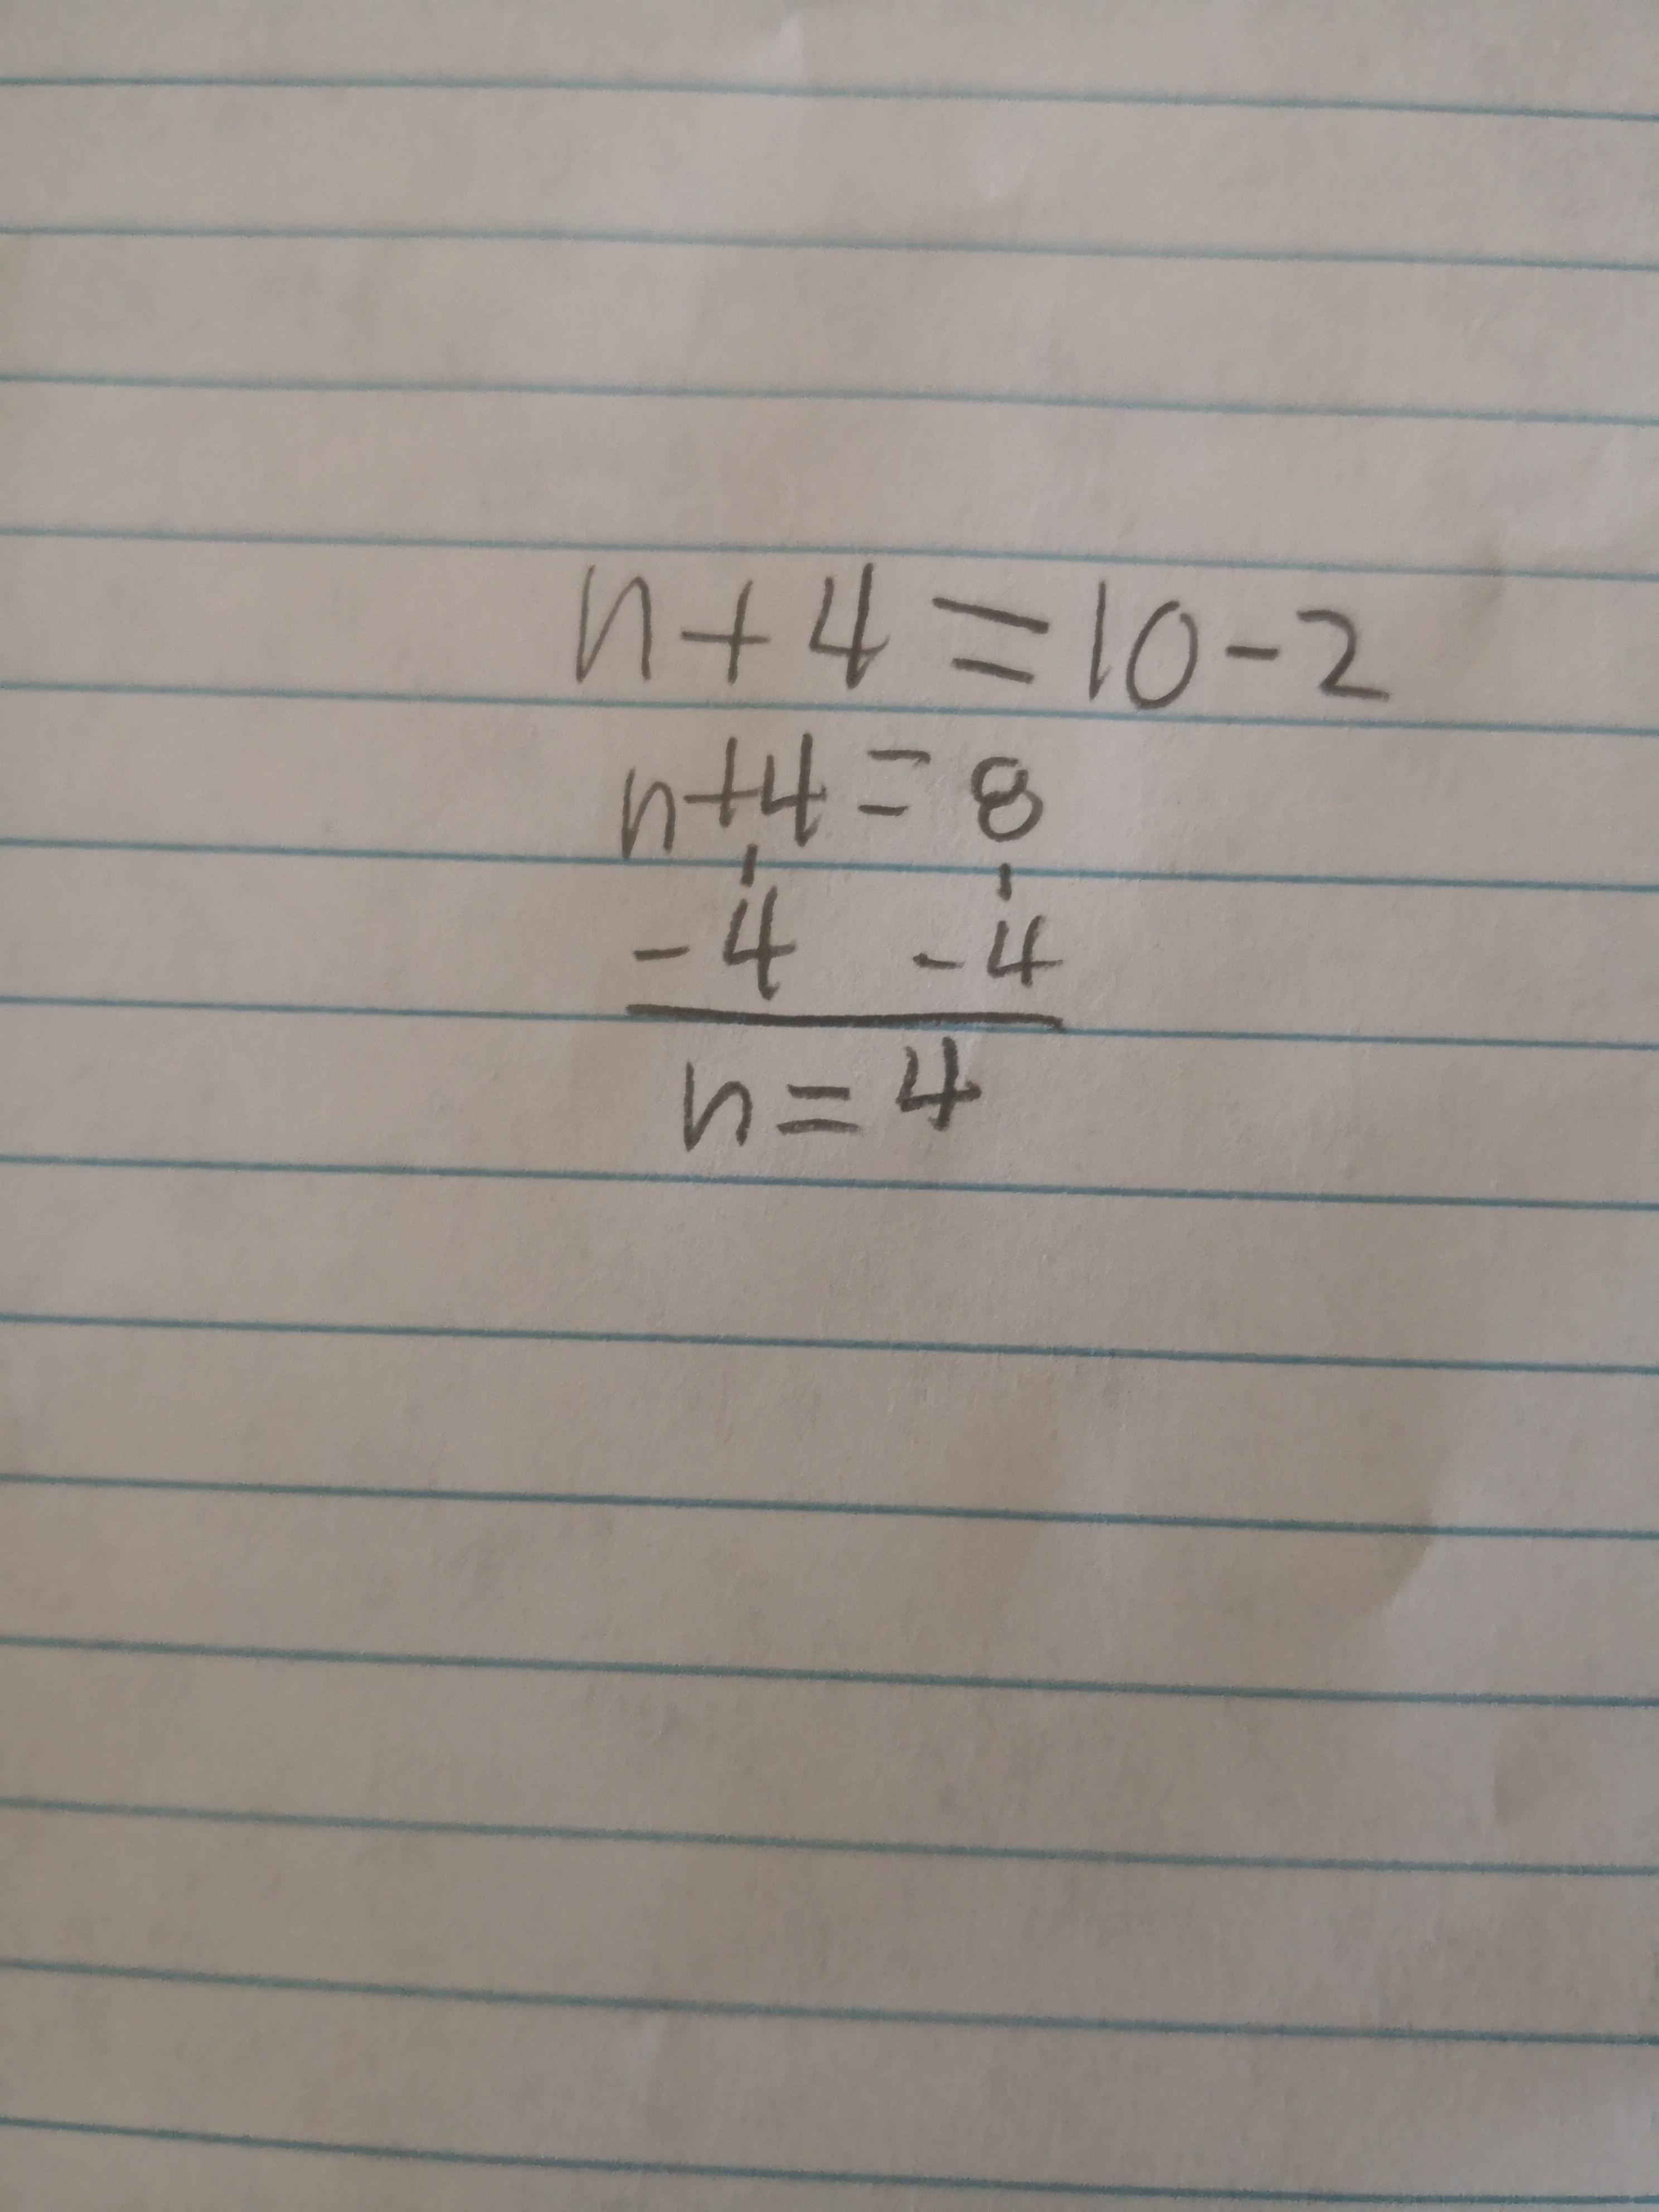 n+4=10-2
n+4=8
-4 -4
n=4